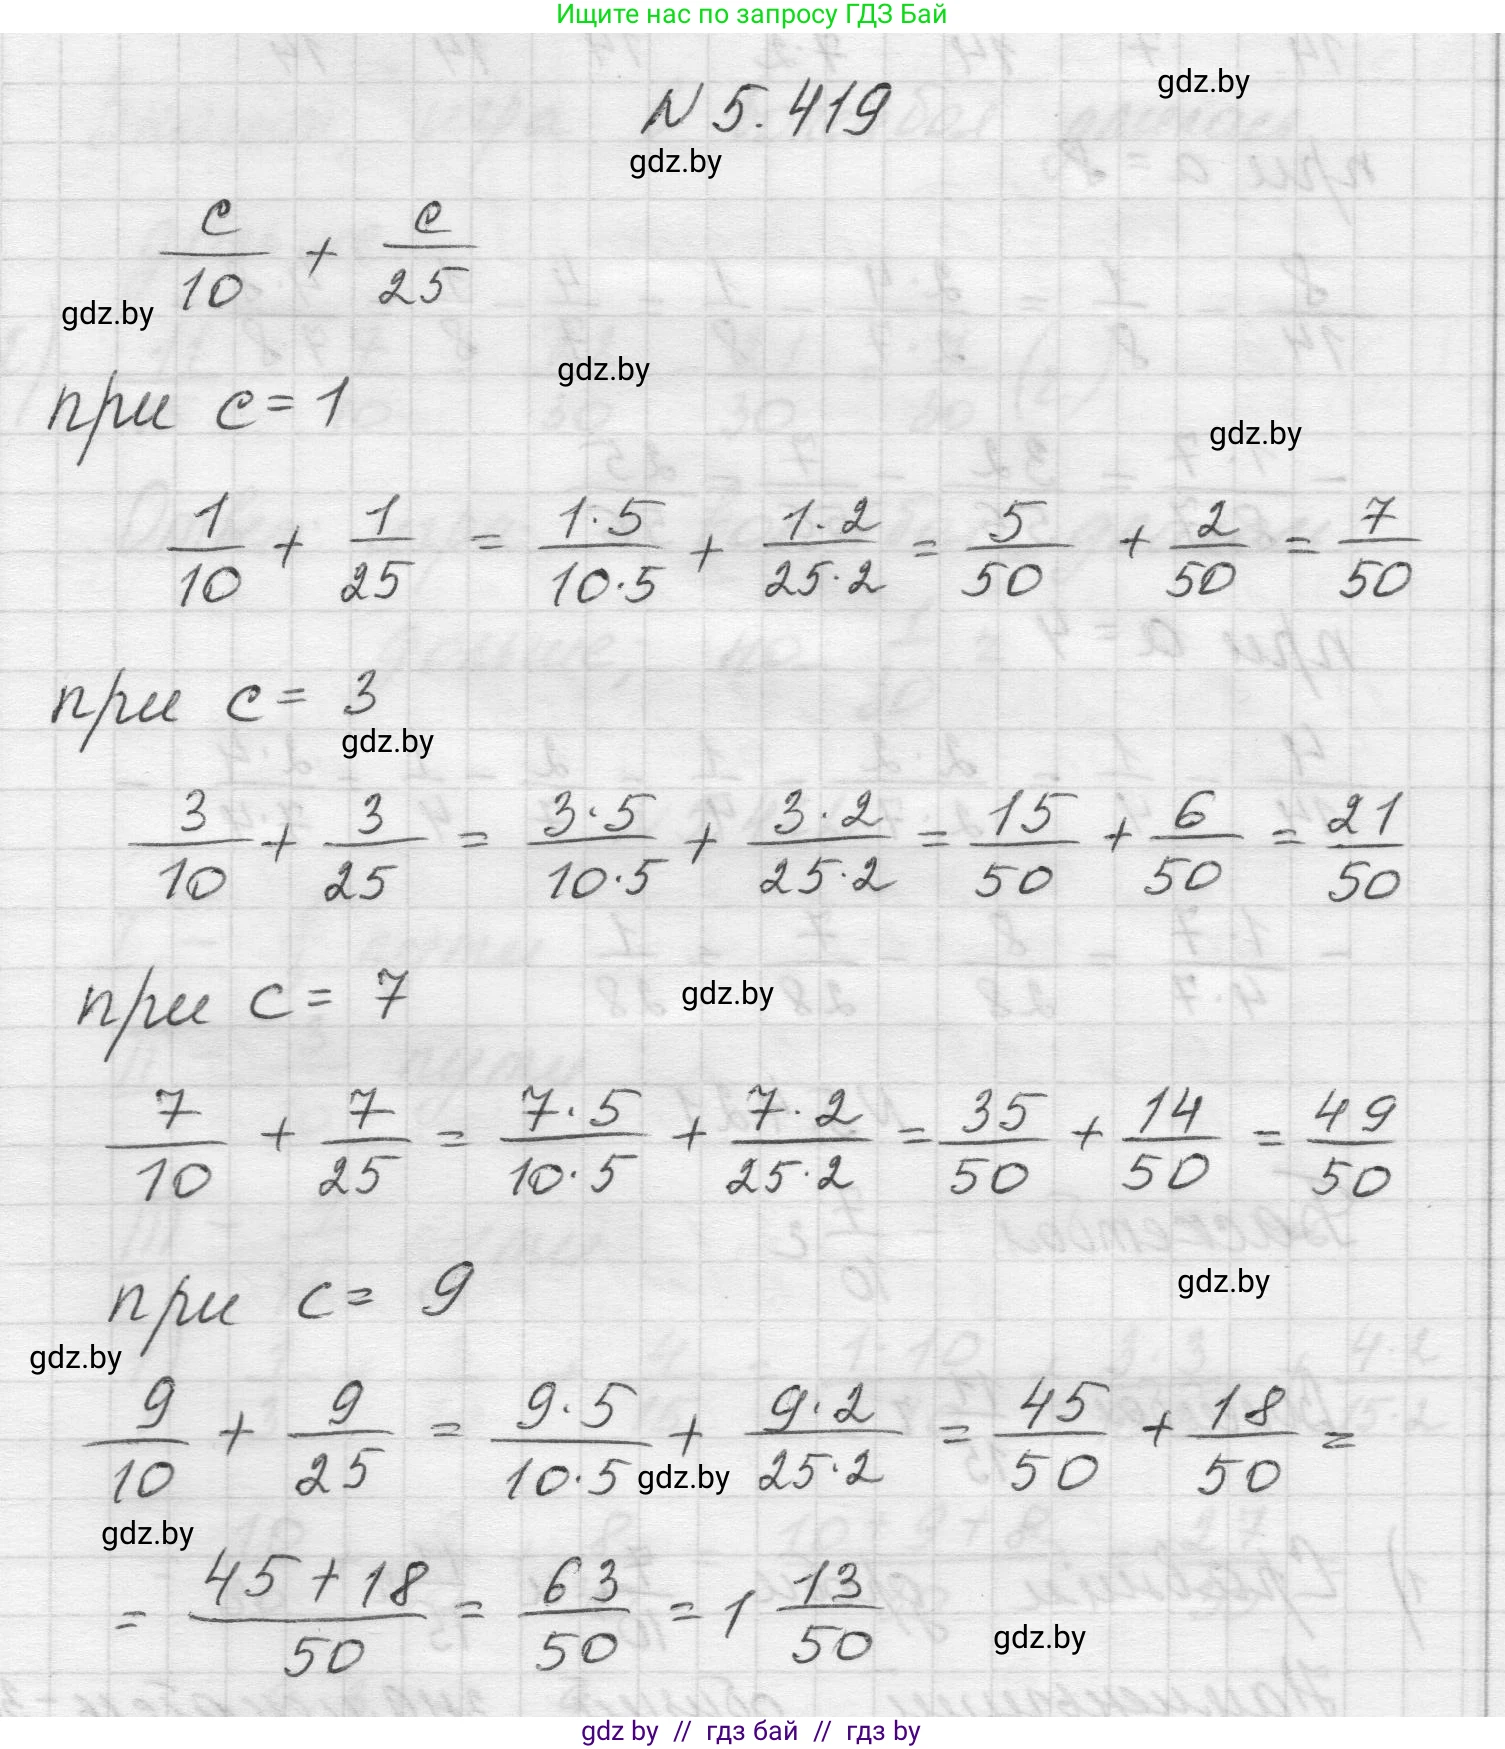 Ищите нас по запросу ГДЗ Бай
gdz.by
N 5.419
gdz.by
c/10 + c/25
gdz.by
gdz.by
при c=1
gdz.by
1/10 + 1/25 = 1·5/10·5 + 1·2/25·2 = 5/50 + 2/50 = 7/50
при c= 3
gdz.by
3/10 + 3/25 = 3·5/10·5 + 3·2/25·2 = 15/50 + 6/50 = 21/50
при c= 7
gdz.by
7/10 + 7/25 = 7·5/10·5 + 7·2/25·2 = 35/50 + 14/50 = 49/50
при c= 9
gdz.by
gdz.by
9/10 + 9/25 = 9·5/10·5 + 9·2/25·2 = 45/50 + 18/50 =
gdz.by
gdz.by
= 45+18/50 = 63/50 = 1 13/50
gdz.by
gdz by // гдз бай // гдз by